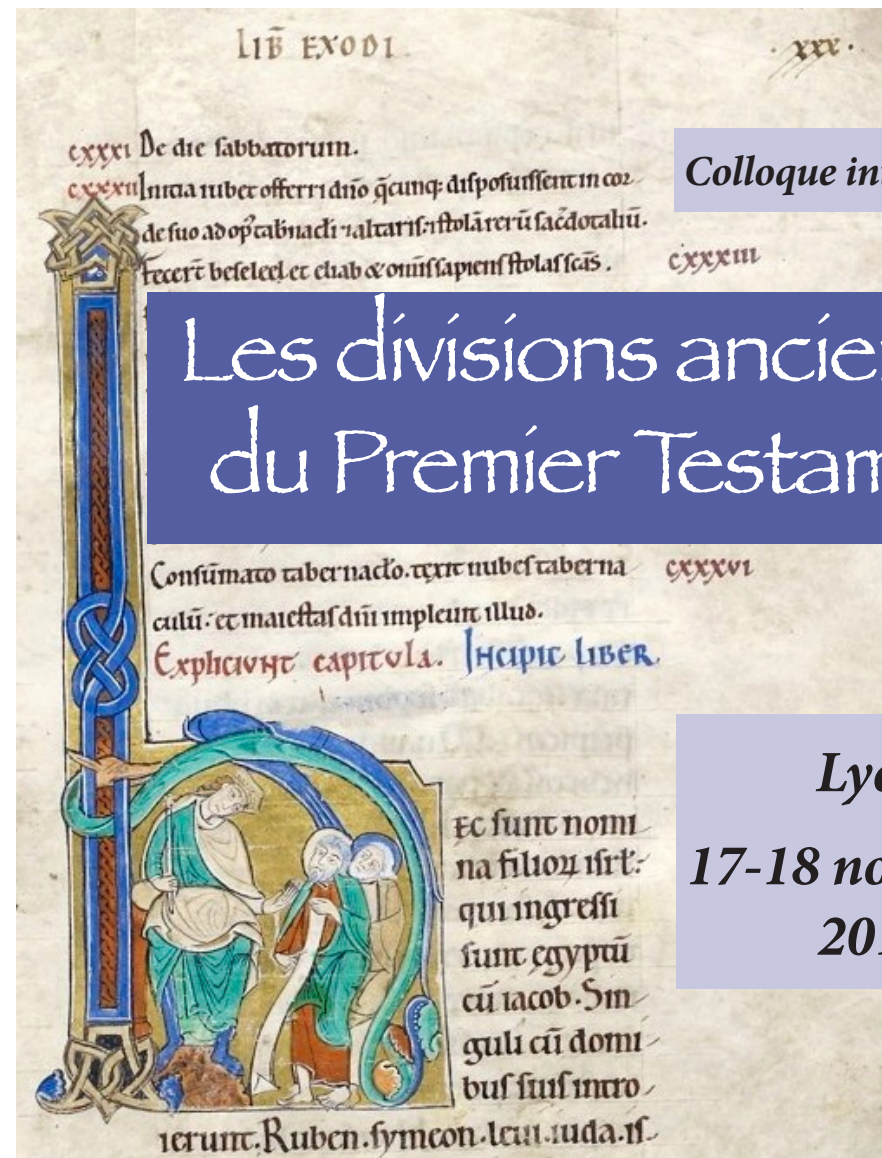 LIB̄ EXODI
· xxx ·
cxxxi De die sabbatorum.
cxxxii Inicia iubet offerri dn̄o q̄cunq: disposuissent in cor
de suo ad op̄ tab̄nacłi ⁊ altaris: ⁊ stolā rerū sac̄dotaliū.
Fecer̄t beseleel et eliab & om̄is sapiens stolas sc̄as. cxxxiii
Colloque in
Les divisions ancie
du Premier Testam
Consūmato tabernacło. texit nubes taberna cxxxvi
culū: et maiestas dn̄i impleuit illud.
Expliciunt capitula. Incipit liber
Lyo
17-18 no
201
Ec sunt nomi
na filioꝝ isrł:
qui ingressi
sunt egyptū
cū iacob. Sin
guli cū domi
bus suis intro
ierunt. Ruben. symeon. leui. iuda. is